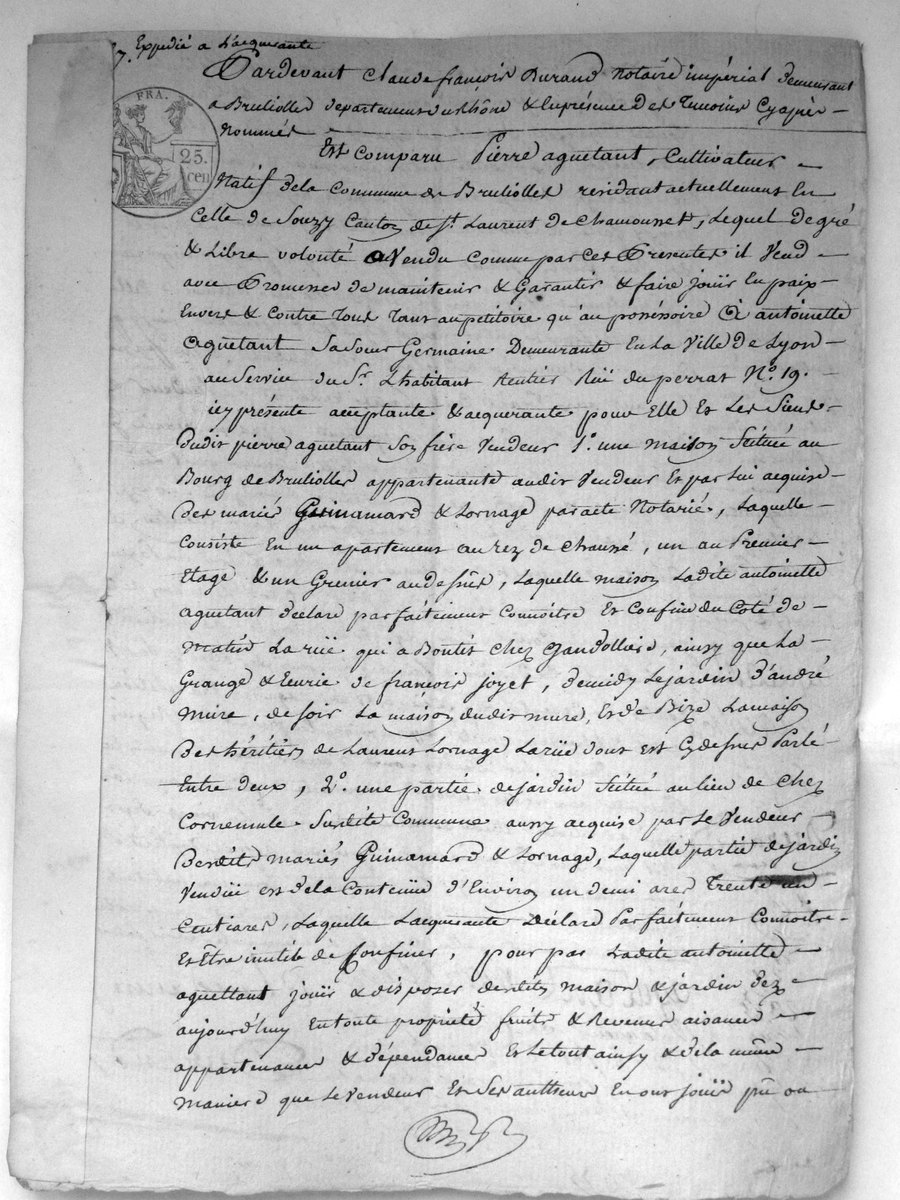 7. Expedié a L'acquerante
Pardevant Claude françois Durand Notaire impérial demeurant
a Brulliolles département du Rhône & En présence des Temoins Cyaprès
nommés
FRA.
25.
cen
Est comparu Pierre aguetant, Cultivateur
Natif de la Commune de Brullioles résidant actuellement En
celle de Souzy Canton de St. Laurent de Chamousset, Lequel de gré
& Libre volonté a Vendu Comme par ces Presentes il Vend
avec Promesses de maintenir & Garantir & faire jouir En paix
Envers & Contre Tous Tant au petitoire qu'au possessoire à antoinette
aguetant Sa Sœur Germaine Demeurante En La Ville de Lyon
au Service du Sr. Lhabitant Rentier Rüe du perrat No. 19.
icy présente acceptante & acquerante pour Elle Et Les Siens
Dudit pierre aguetant Son frère Vendeur 1o. une maison Scituée au
Bourg de Brulliolles appartenante audit Vendeur Et par Lui acquise
Des mariés Guinamard & Lornage par acte Notarié, Laquelle
Consiste En un apartement au Rez de Chaussé, un au Premier
Etage & un Grenier au dessus, Laquelle maison Ladite antoinette
aguetant Déclare parfaitement Connoître Et Confine du Coté de
matin La rüe qui a Boutit Chez Gandollière, ainsy que La
Grange & Ecurie de françois joyet, de midy Le jardin d'andré
mure, de soir La maison dudit mure, Et de Bize La maison
Des héritiers de Laurent Lornage La rüe dont est Cy dessus Parlé
Entre deux, 2o. une partie de jardin Scitué au lieu de Chez
Cornemule Susdite Commune aussy acquise par Le Vendeur
Desdits mariés Guinamard & Lornage, Laquelle partie de jardin
Vendüe est de la Contenüe d'Environ un demi are Trente un
Centiares, Laquelle L'acquerante Déclare Parfaitement Connoitre
Et Être inutile de Confiner, pour par Ladite antoinette
aguettant jouir & disposer desdits maison & jardin dez
aujourd'huy En toute propriété fruits & Revenus aisances
appartenances & dépendances Et Le tout ainsy & de la même
maniere que Le Vendeur Et Ses autheurs En ont jouï pû ou